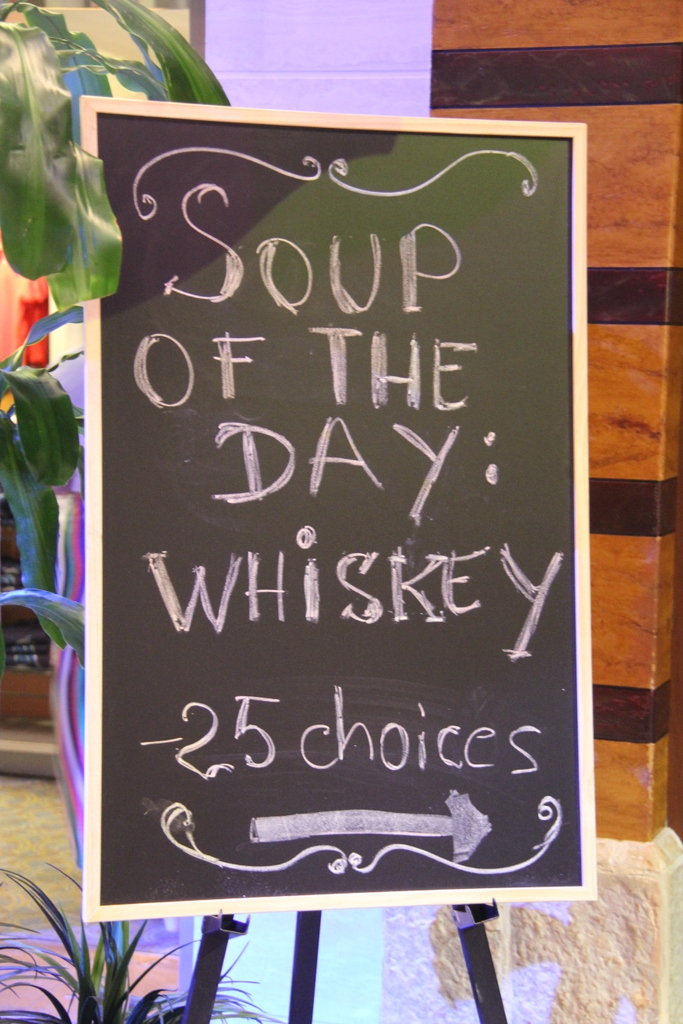 SOUP
OF THE
DAY:
WHiSKEY
-25 choices